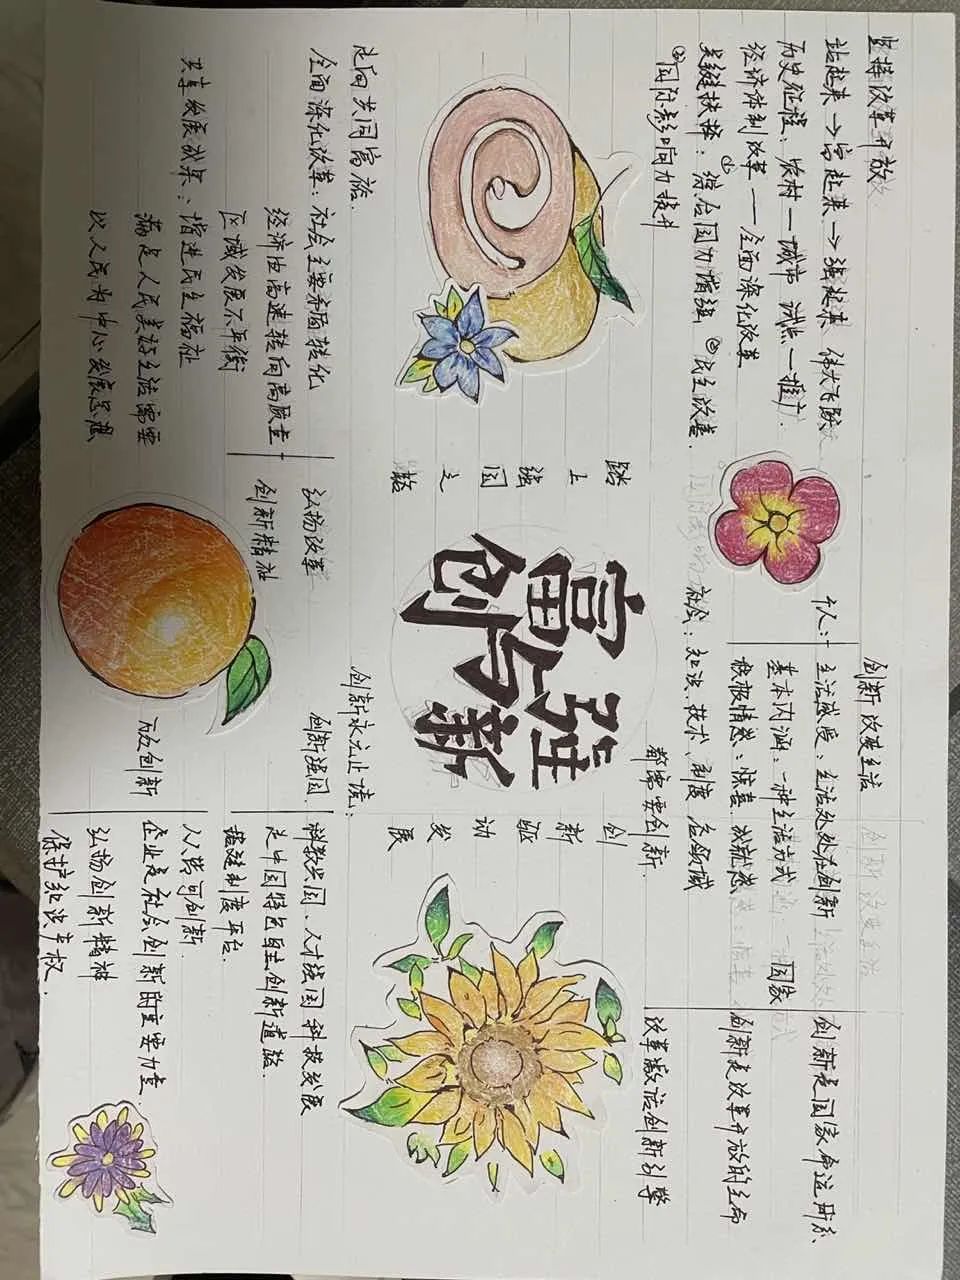 坚持改革开放
站起来→富起来→强起来 伟大飞跃
历史征程：农村—城市 试点—推广
经济体制改革——全面深化改革
关键抉择：①综合国力增强 ②民生改善
③国际影响力提升
走向共同富裕
全面深化改革：社会主要矛盾转化
经济由高速转向高质量
区域发展不平衡
共享发展成果：增进民生福祉
满足人民美好生活需要
以人民为中心发展思想
踏上强国之路
富强与创新
创新驱动发展
创新改变生活
个人：
生活感受：生活处处在创新
基本内涵：一种生活方式
积极情感：惊喜、成就感
国家
创新是国家命运所系
创新是改革开放的生命
社会：知识、技术、制度 应领域
都需要创新
改革激活创新引擎
创新永无止境：
弘扬改革
创新精神
创新强国
科教兴国、人才强国 科技发展
走中国特色自主创新道路
搭建制度平台
万众创新
人人皆可创新
企业是社会创新的重要力量
弘扬创新精神
保护知识产权